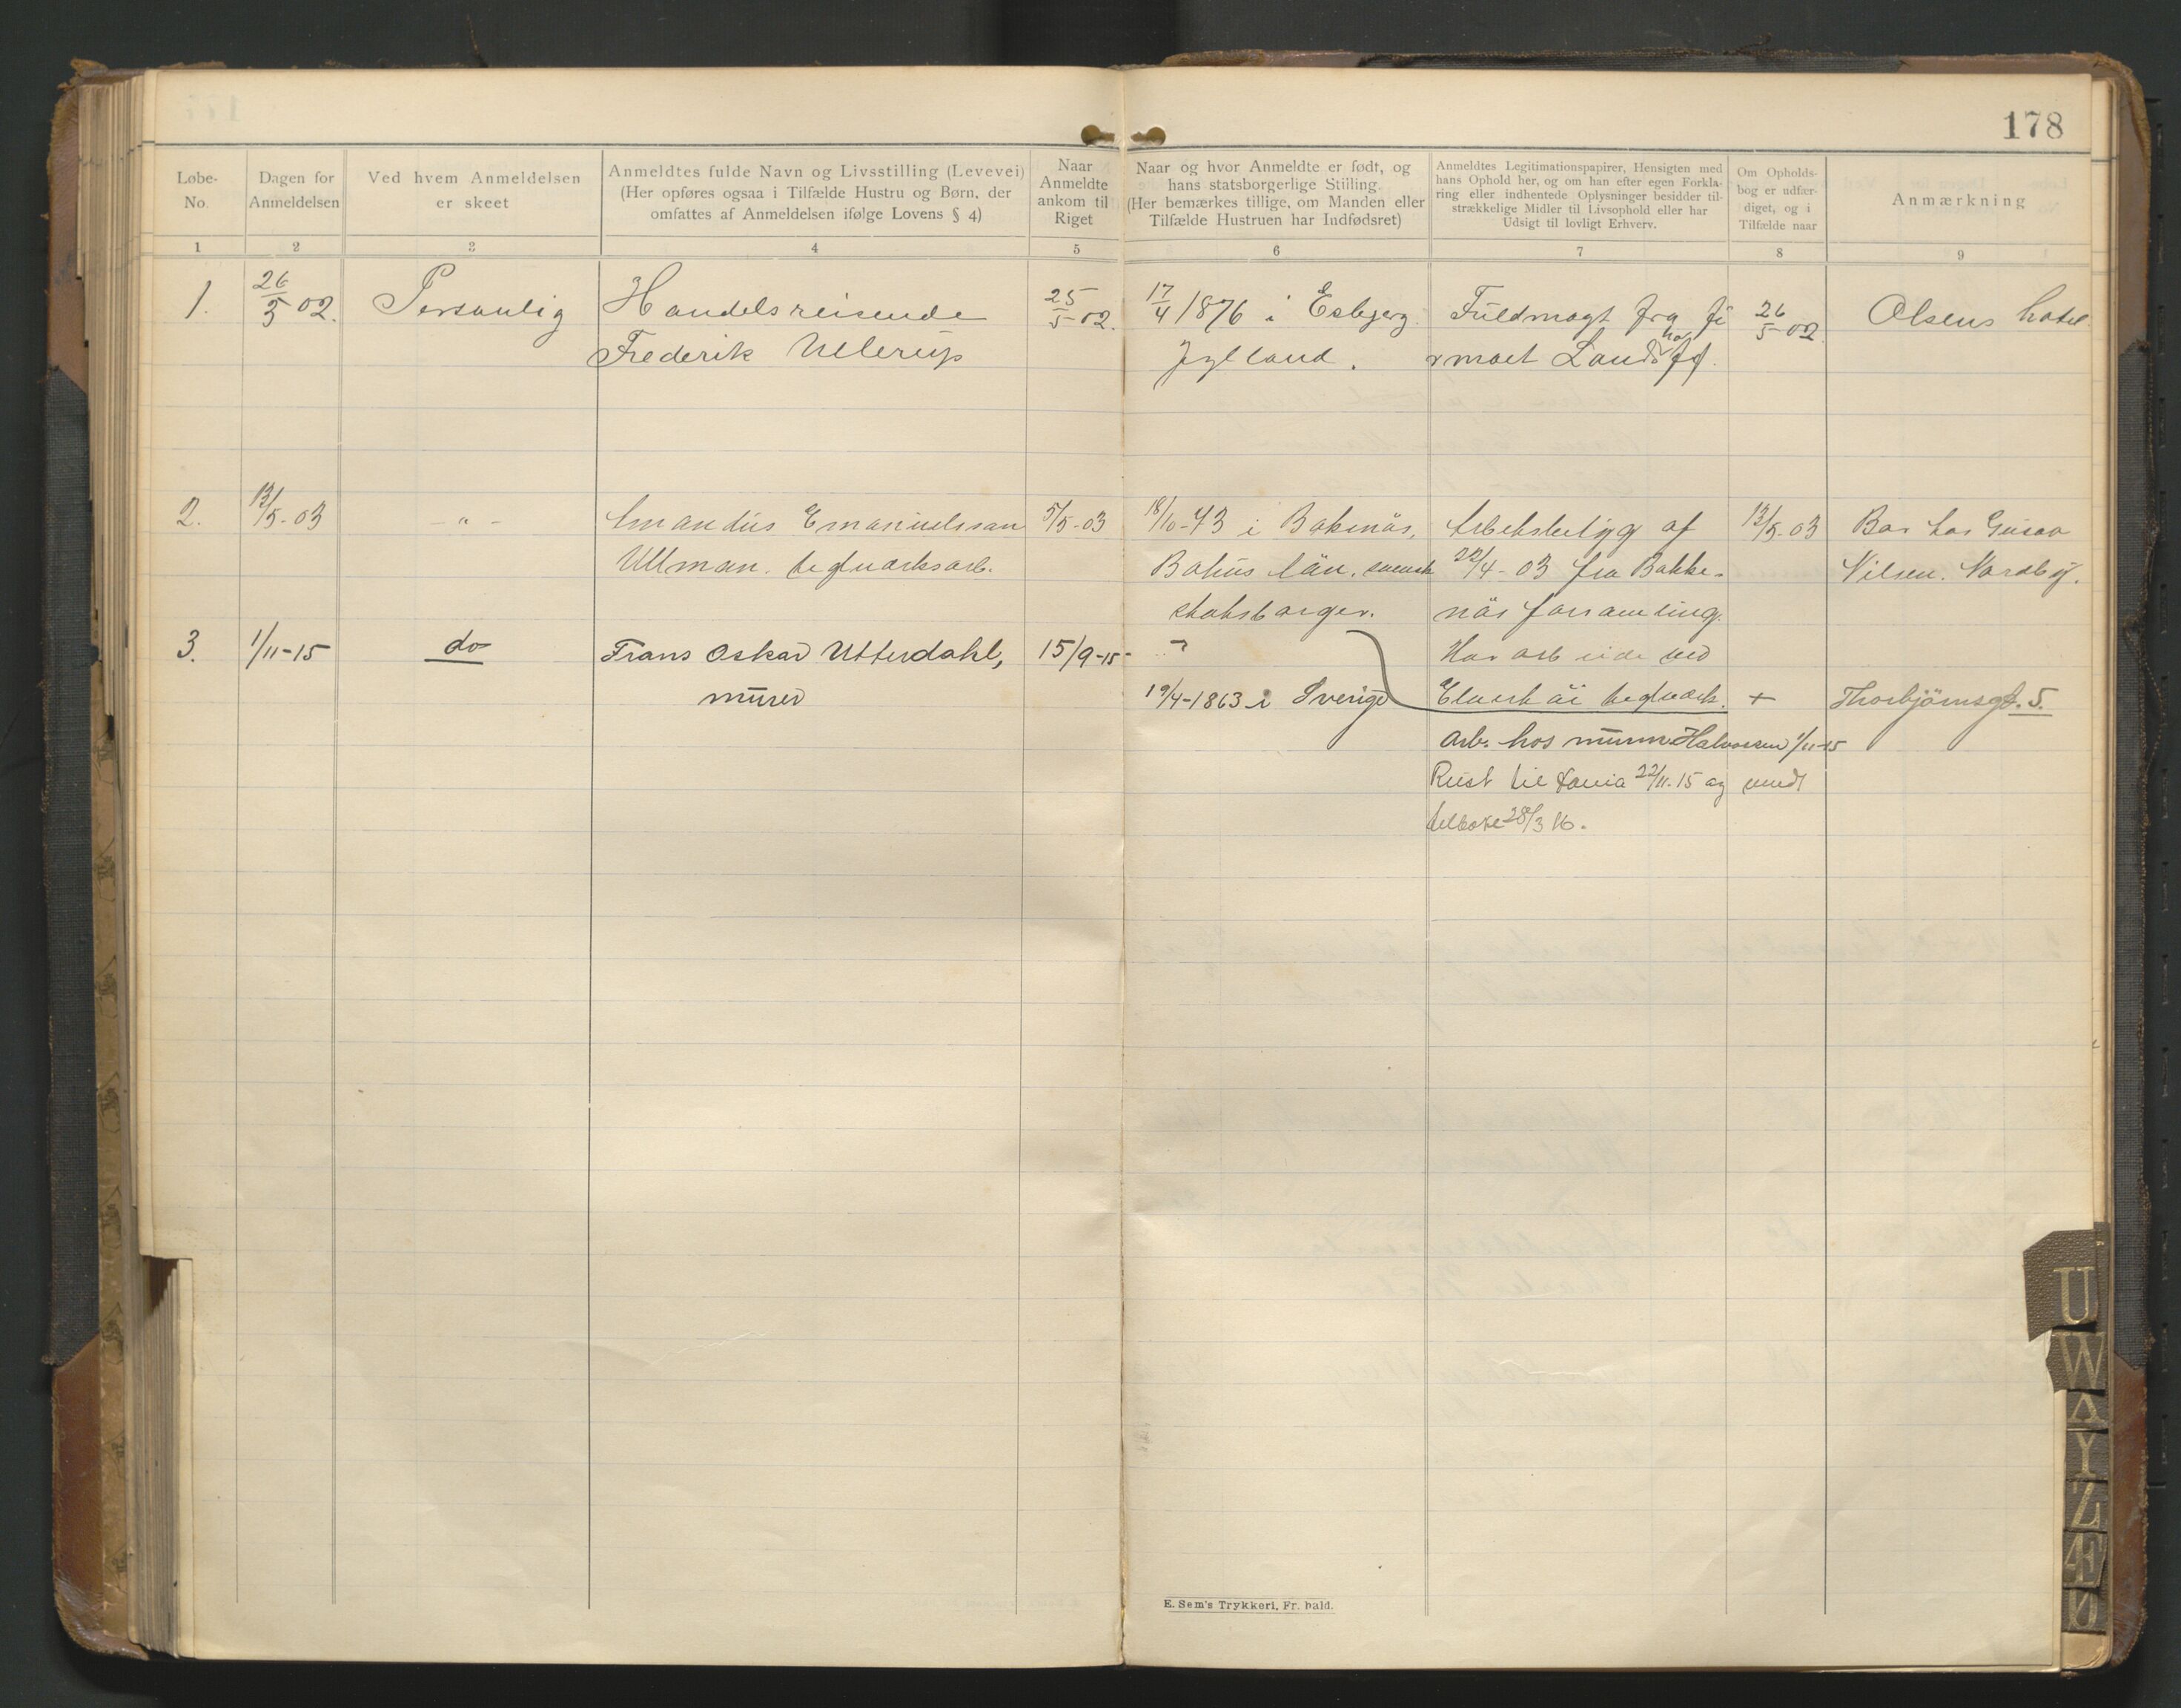 178
Løbe-
No.
Dagen for
Anmeldelsen
Ved hvem Anmeldelsen
er skeet
Anmeldtes fulde Navn og Livsstilling (Levevei)
(Her opføres ogsaa i Tilfælde Hustru og Børn, der
omfattes af Anmeldelsen ifølge Lovens § 4)
Naar
Anmeldte
ankom til
Riget
Naar og hvor Anmeldte er født, og
hans statsborgerlige Stilling.
(Her bemærkes tillige, om Manden eller
Tilfælde Hustruen har Indfødsret)
Anmeldtes Legitimationspapirer, Hensigten med
hans Ophold her, og om han efter egen Forkla-
ring eller indhentede Oplysninger besidder til-
strækkelige Midler til Livsophold eller har
Udsigt til lovligt Erhverv.
Om Opholds-
bog er udfær-
diget, og i
Tilfælde naar
Anmærkning
1 2 3 4 5 6 7 8 9
1. 26/5 02. Personlig Handelsreisende 25/5 02. 17/4 1876 i Esbjerg Fuldmagt fra fi 26/5 02. Olsens hotel
Frederik Ullerup Jylland. rmaet
2. 13/5-03 - " - Amandus Emanuelsson 5/5-03 18/10-43 i Bakenäs, Arbetsbetyg af 13/5-03 Bor hos
Ullman. teglværksarb. Bohus län. svensk 22/4-03 fra Bakke-
Nilsen.
statsborger. näs forsamling.
3. 1/11-15 do Frans Oskar Utterdahl, 15/9-15- Har arbeide ved
murer 19/4-1863 i Sverige teglværk. + Thorbjörnsgt. 5.
Arb. hos murm. Halvorsen 1/11-15
Reist til 22/11-15 og vendt
tilbake 28/3 16.
E. Sem's Trykkeri, Fr.hald.
U
W
X
Y
Z
Æ
Ø